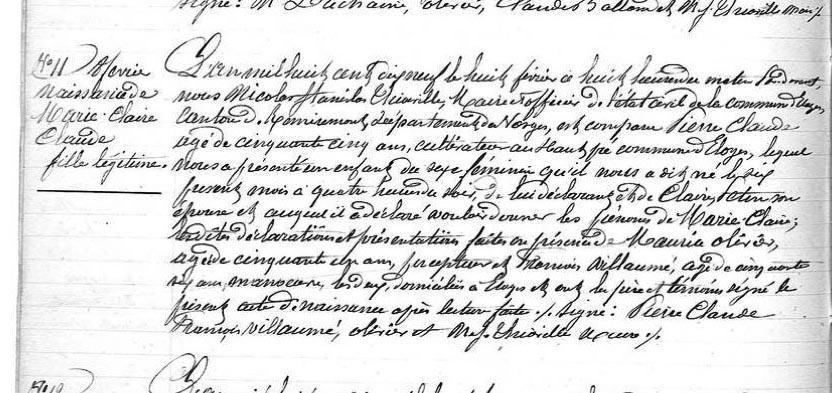 signé: M Duchaine, olivier, Claude Ballon et N. S. Thiriville maire /.
N° 11 8 février
naissance de
Marie-Claire
Claude
fille légitime.
L'an mil huit cent dix neuf le huit février à huit heures du matin Pardevant
nous Nicolas Stanislas Maire et officier de l'état civil de la commune d'Eloyes,
canton de Remiremont, département des Vosges, est comparu Pierre Claude
agé de cinquante cinq ans, cultivateur au haut pré commune d'Eloyes, lequel
nous a présenté un enfant du sexe féminin qu'il nous a dit né le six
présent mois à quatre heures du soir, de lui déclarant et de Claire son
épouse et auquel il a déclaré vouloir donner les prénoms de Marie-Claire;
lesdites déclarations et présentations faites en présence de Maurice olivier,
agé de cinquante ans, percepteur et François Villaumé, agé de cinquante
six ans, manoeuvre, les deux domiciliés à Eloyes et ont les père et témoins signé le
présent acte de naissance après lecture faite /. signé: Pierre Claude
François Villaumé, olivier et N. S. maire /.
N° 12
L'an mil huit cent